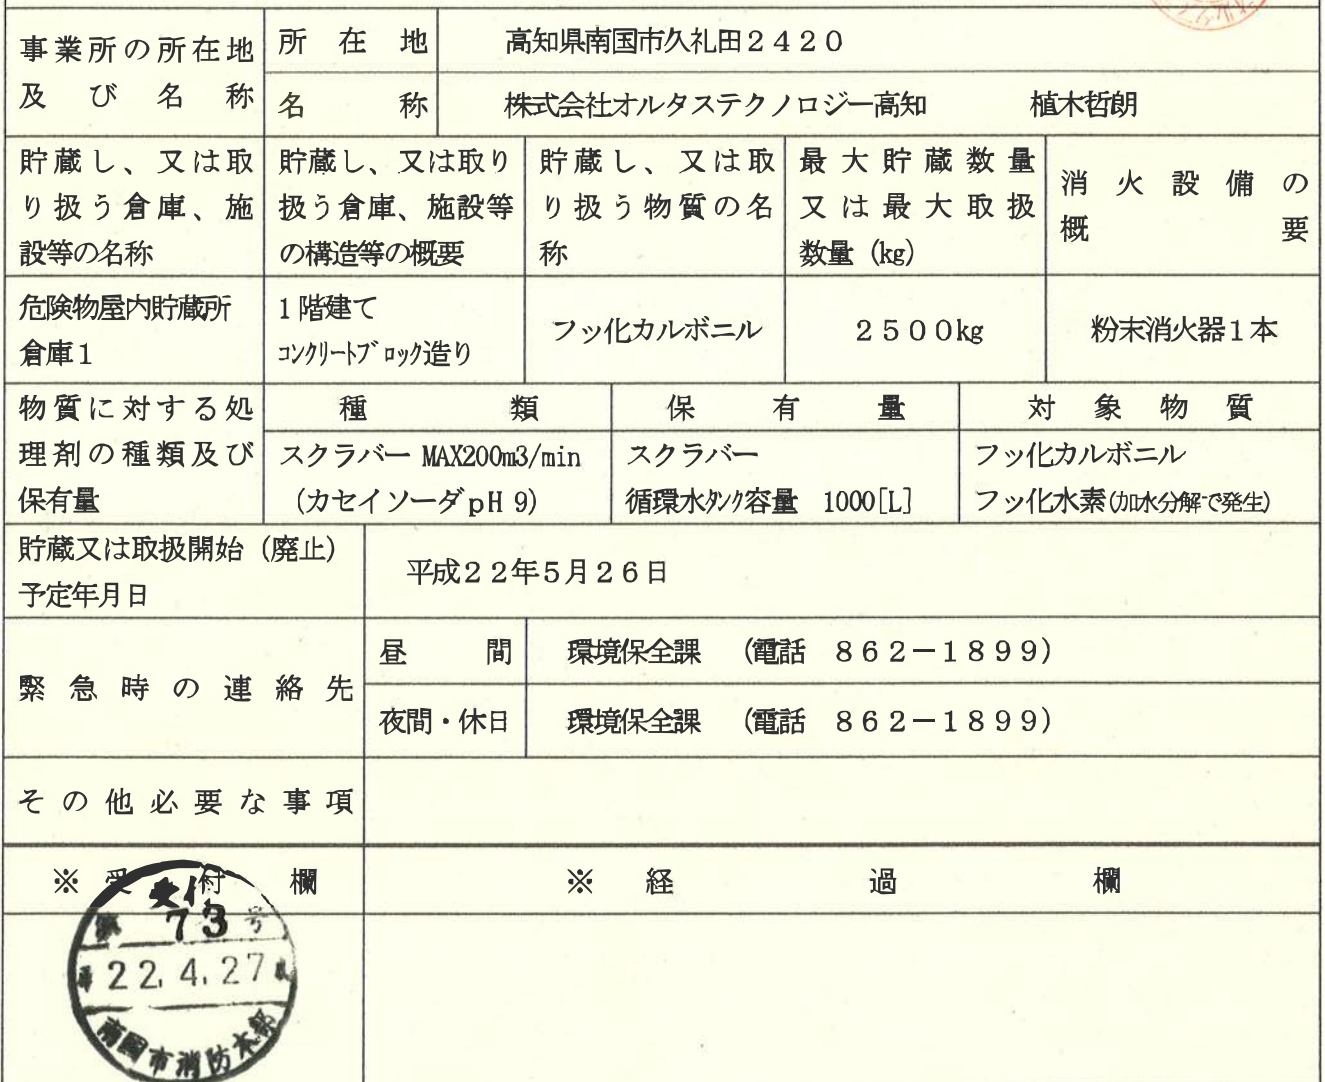 事業所の所在地
及び名称
所在地
高知県南国市久礼田２４２０
名称
株式会社オルタステクノロジー高知　植木哲朗
貯蔵し、又は取
り扱う倉庫、施
設等の名称
貯蔵し、又は取り
扱う倉庫、施設等
の構造等の概要
貯蔵し、又は取
り扱う物質の名
称
最大貯蔵数量
又は最大取扱
数量（kg）
消火設備の
概要
危険物屋内貯蔵所
倉庫１
１階建て
ｺﾝｸﾘｰﾄﾌﾞﾛｯｸ造り
フッ化カルボニル
２５００kg
粉末消火器１本
物質に対する処
理剤の種類及び
保有量
種類
保有量
対象物質
スクラバー MAX200m3/min
（カセイソーダｐH 9）
スクラバー
循環水ﾀﾝｸ容量 1000[L]
フッ化カルボニル
フッ化水素(加水分解で発生)
貯蔵又は取扱開始（廃止）
予定年月日
平成２２年５月２６日
緊急時の連絡先
昼間
環境保全課　（電話　８６２－１８９９）
夜間・休日
環境保全課　（電話　８６２－１８９９）
その他必要な事項
※受付欄
※経過欄
受付
第 73 号
22.4.27
南国市消防本部